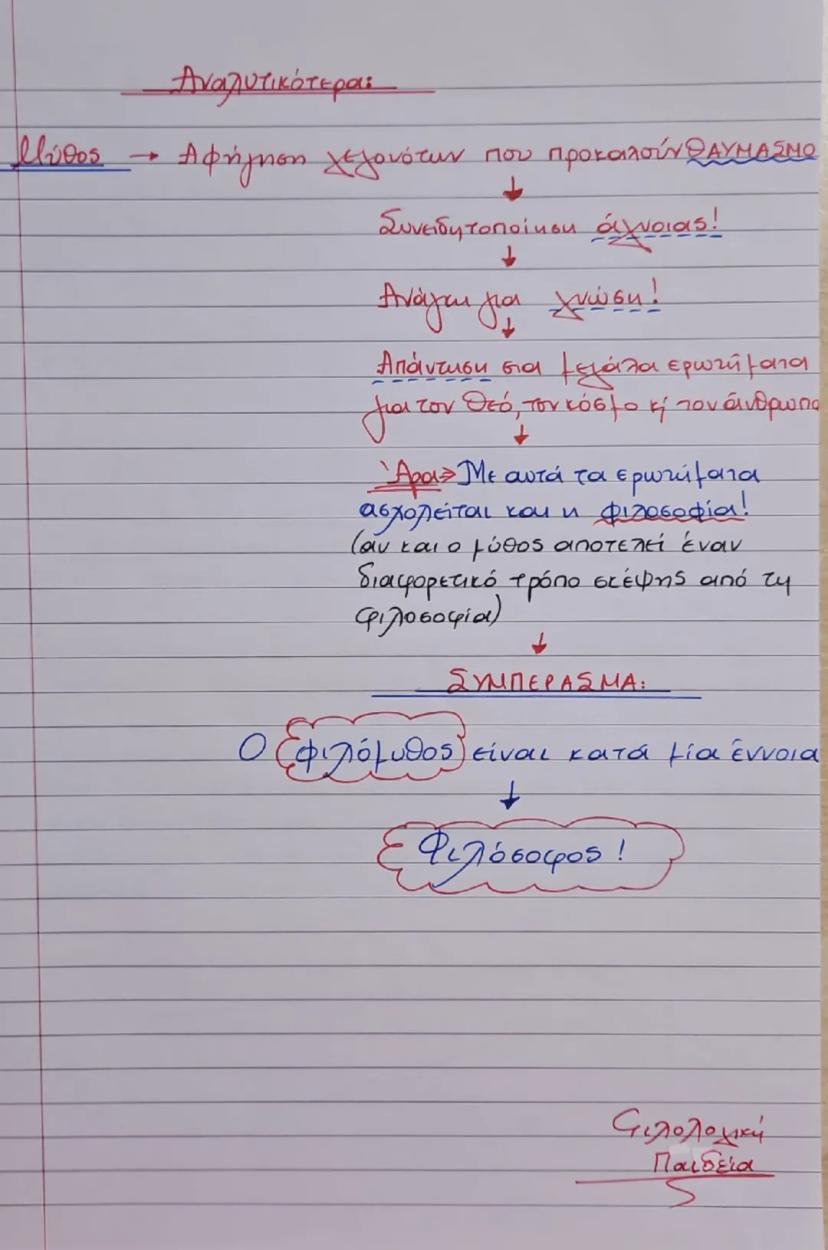 Αναλυτικότερα:
Μύθος → Αφήγηση γεγονότων που προκαλούν ΘΑΥΜΑΣΜΟ
↓
Συνειδητοποίηση άγνοιας!
↓
Ανάγκη για γνώση!
↓
Απάντηση στα μεγάλα ερωτήματα
για τον Θεό, τον κόσμο κ' τον άνθρωπο
↓
Άρα⇒ Με αυτά τα ερωτήματα
ασχολείται και η φιλοσοφία!
(αν και ο μύθος αποτελεί έναν
διαφορετικό τρόπο σκέψης από τη
φιλοσοφία)
↓
ΣΥΜΠΕΡΑΣΜΑ:
Ο φιλόμυθος είναι κατά μία έννοια
↓
Φιλόσοφος!
Φιλολογική
Παιδεία